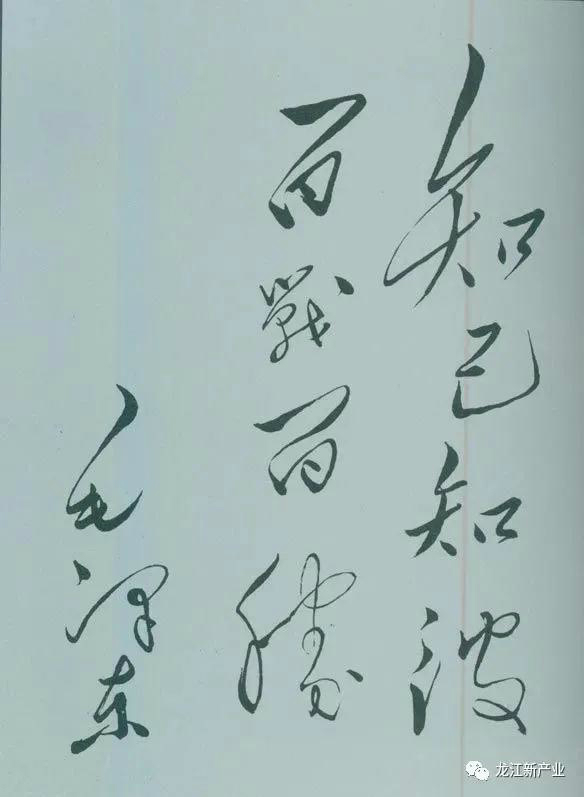 知己知彼
百戰百勝
毛泽东
龙江新产业